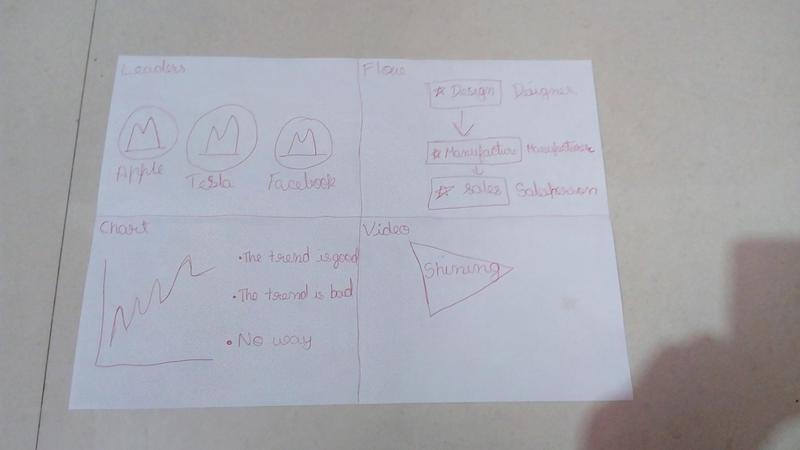 Leaders
M M M
Apple Tesla Facebook
Flow
☆ Design Designer
☆ Manufacture Manufacturer
☆ Sales Salesperson
Chart
• The trend is good
• The trend is bad
• No way
Video
Shining